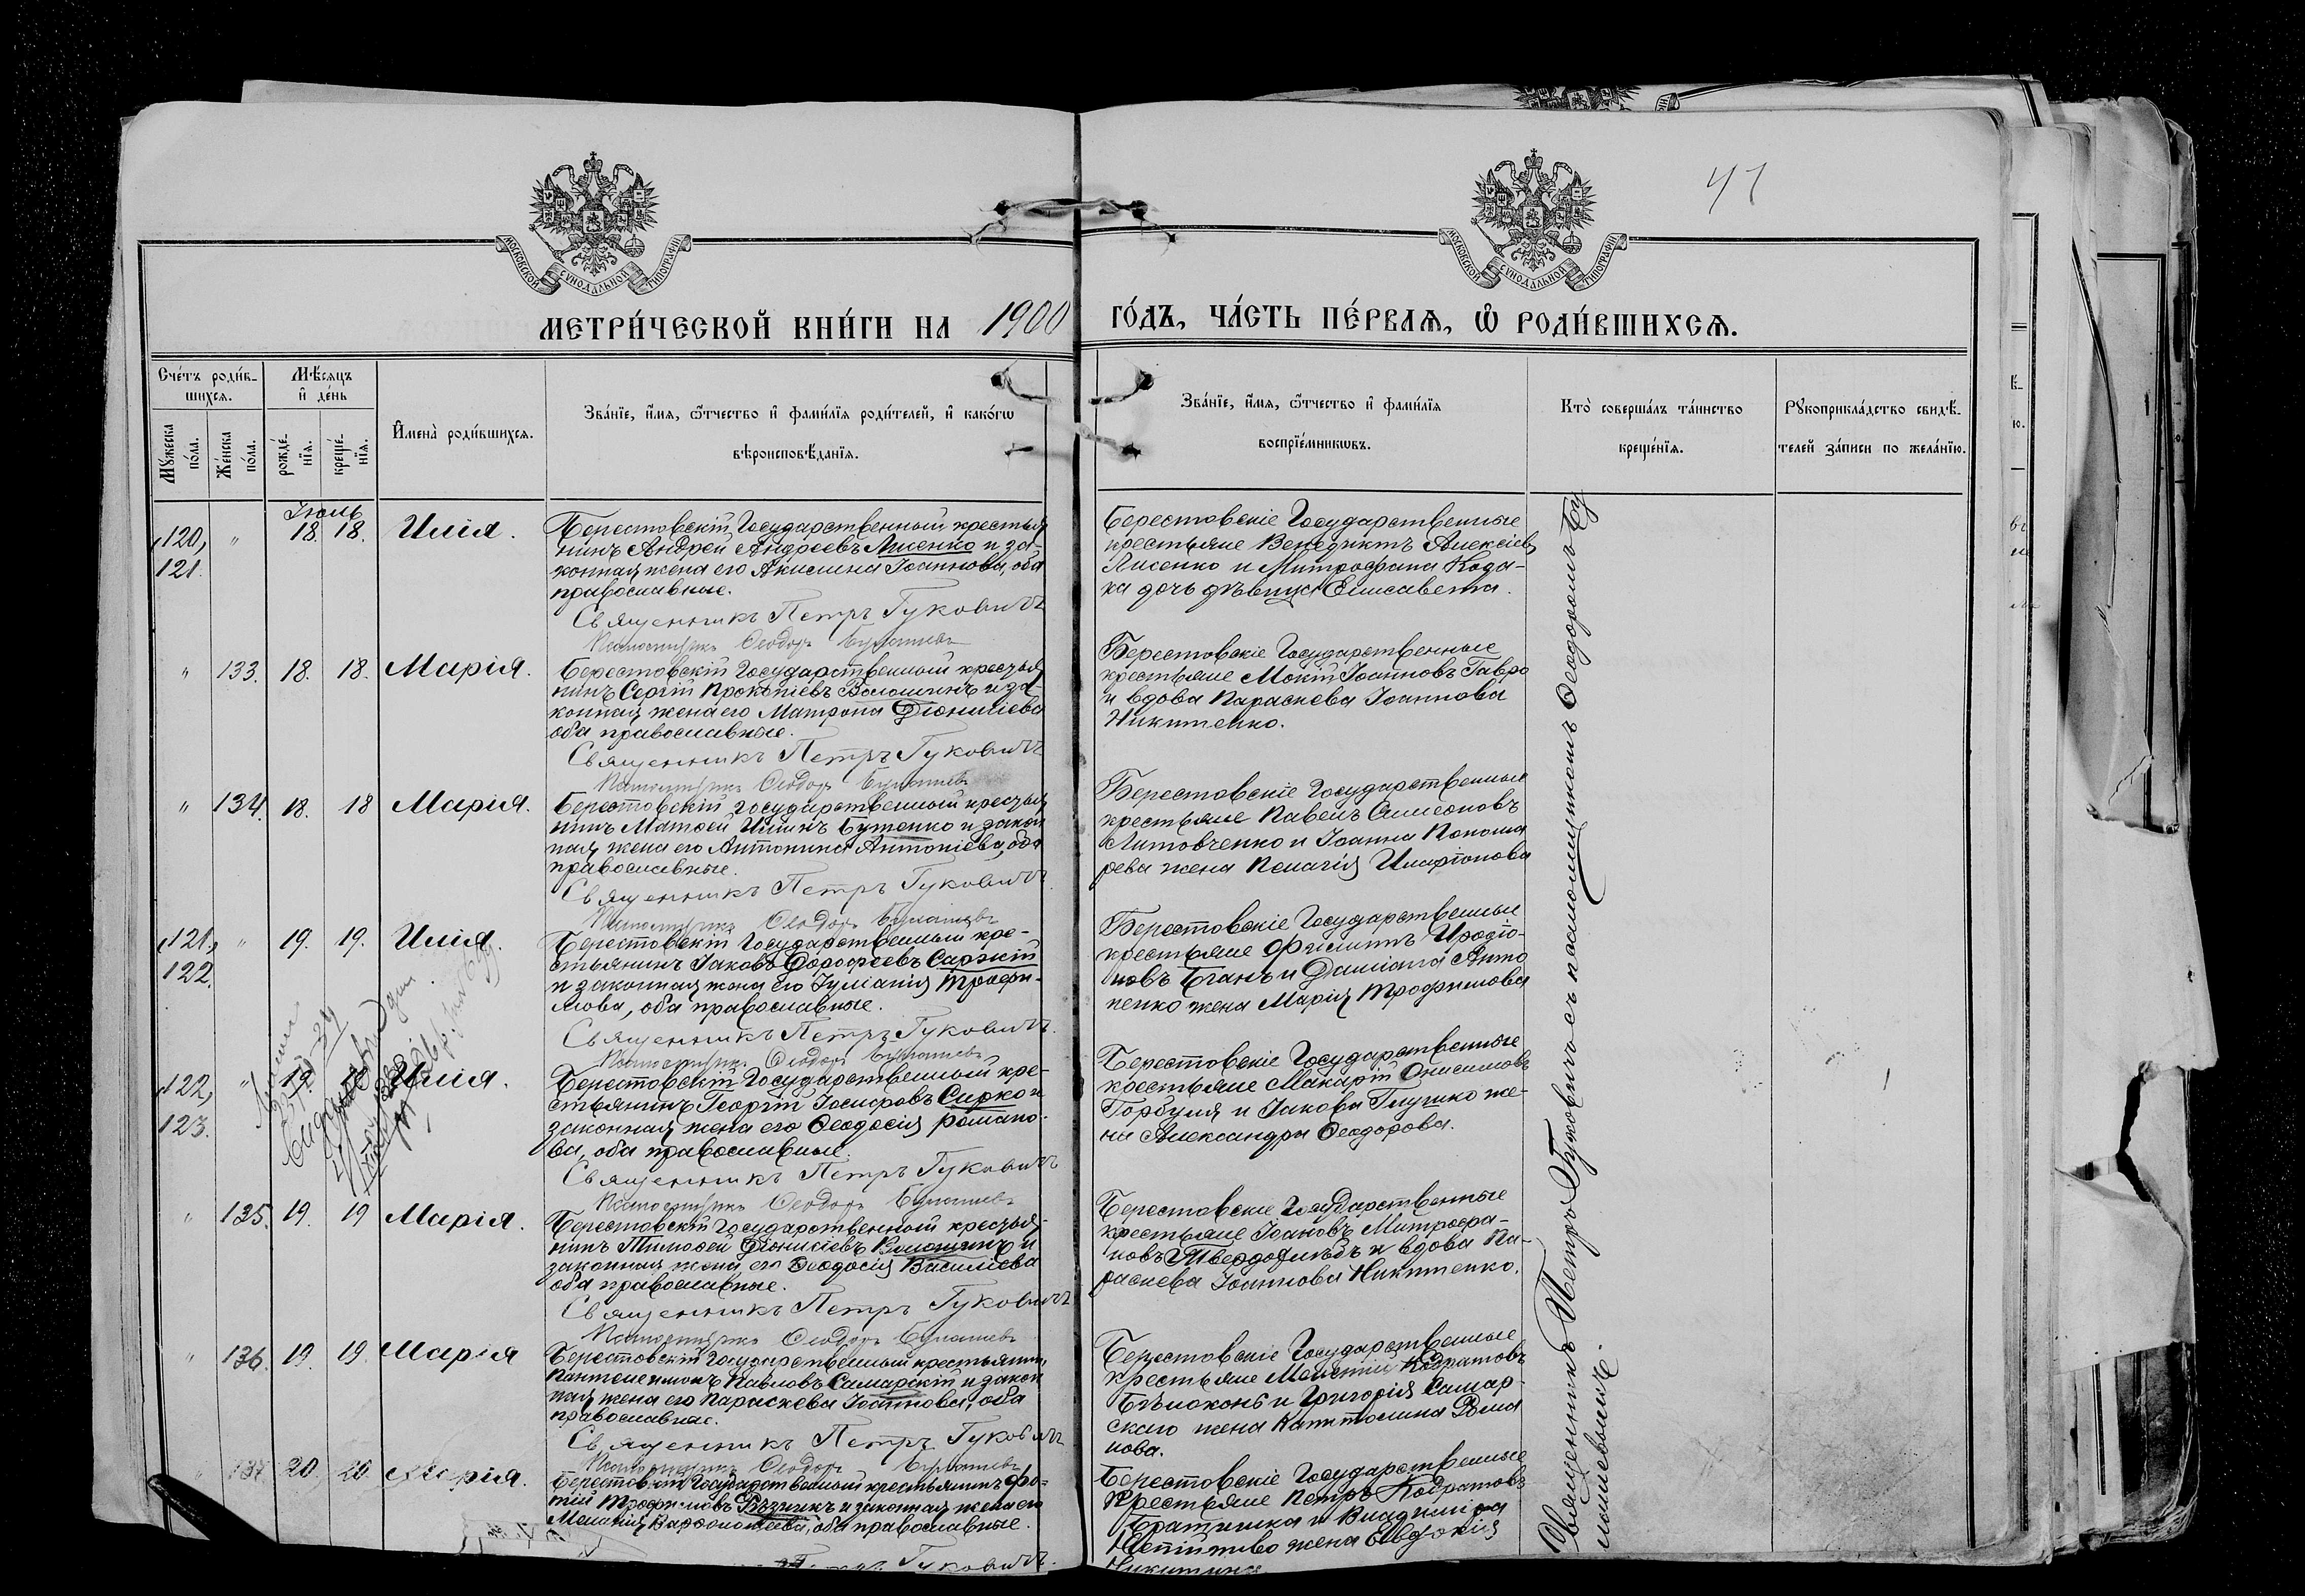 41
МОСКОВСКОЙ СѴНОДАЛЬНОЙ ТИПОГРАФІИ
МОСКОВСКОЙ СѴНОДАЛЬНОЙ ТИПОГРАФІИ
МЕТРИ́ЧЕСКОЙ КНИ́ГИ НА 1900 ГО́ДЪ, ЧА́СТЬ ПЕ́РВАѦ, Ѽ РОДИ́ВШИХСѦ.
Сче́тъ роди́в-
шихсѧ.
Мѣ́сѧцъ
и҆ де́нь
Мꙋ́жеска по́ла.
Же́нска по́ла.
рожде́-
нїѧ.
креще́-
нїѧ.
И҆мена̀ роди́вшихсѧ.
Зва́нїе, и҆́мѧ, ѻ҆́тчество и҆ фами́лїѧ роди́телей, и҆ како́гѡ
вѣроисповѣ́данїѧ.
Зва́нїе, и҆́мѧ, ѻ҆́тчество и҆ фами́лїѧ
воспрїе́мникѡвъ.
Кто̀ соверша́лъ та́инство
креще́нїѧ.
Рꙋкоприкла́дство свидѣ́-
телей за́писи по жела́нїю.
Іюль
120, " 18. 18. Илія.
121.
Берестовскій Государственный крестья
нинъ Андрей Андреевъ Лисенко и за-
конная жена его Акилина Іоаннова, оба
православные.
Священникъ Петръ Гукович
Псаломщикъ Ѳеодоръ
Берестовскіе Государственные
крестьяне Венедиктъ Алексіевъ
Лисенко и Митрофана Кода-
ка дочь дѣвица Елисавета.
" 133. 18. 18. Марія.
Берестовскій Государственный крестья
нинъ Сергій Прокопіевъ Волошинъ и за-
конная жена его Матрона Діонисіева
оба православные.
Священникъ Петръ Гукович
Псаломщикъ Ѳеодоръ
Берестовскіе Государственные
крестьяне Мокій Іоанновъ Гавро
и вдова Параскева Іоаннова
Никитенко.
" 134. 18. 18 Марія.
Берестовскій Государственный крестья
нинъ Матѳей Бутенко и закон
ная жена его Антонина Антоніева, оба
православные.
Священникъ Петръ Гукович
Псаломщикъ Ѳеодоръ
Берестовскіе Государственные
крестьяне Павелъ Симеоновъ
Литовченко и Іоанна Понома
рева жена Пелагія Иларіонова
121, " 19. 19. Илія.
122.
Берестовскій Государственный кре-
стьянинъ Іаковъ Дороѳеевъ Саржій
и законная жена его Іуліанія Трофи-
мова, оба православные.
Священникъ Петръ Гукович
Псаломщикъ Ѳеодоръ
Берестовскіе Государственные
крестьяне Филиппъ Иродіо-
новъ и Даміана Анто
ненко жена Марія Трофимова
122, " 19. Илія.
123.
Берестовскій Государственный кре-
стьянинъ Георгій Іосифовъ Сирко и
законная жена его Ѳеодосія Романо-
ва, оба православные.
Священникъ Петръ Гукович
Псаломщикъ Ѳеодоръ
Берестовскіе Государственные
крестьяне Макарій Онисимовъ
Горбуля и Іакова Глушко же-
на Александра Ѳеодорова.
" 135. 19. 19 Марія.
Берестовскій Государственный крестья-
нинъ Тимоѳей Діонисіевъ Волошинъ и
законная жена его Ѳеодосія Васильева
оба православные.
Священникъ Петръ Гукович
Псаломщикъ Ѳеодоръ
Берестовскіе Государственные
крестьяне Іоановъ Митрофа-
новъ Твердохлѣбъ и вдова Па-
раскева Іоаннова Никитенко.
" 136. 19. 19. Марія
Берестовскій Государственный крестьянин
Пантелеимонъ Павловъ Самарскій и закон
ная жена его Параскева Іоаннова, оба
православные.
Священникъ Петръ Гукович
Псаломщикъ Ѳеодоръ
Берестовскіе Государственные
крестьяне Мелетій Кодратовъ
Бѣлоконь и Григорія Самар-
скаго жена Капитолина Рома
нова.
" 137. 20. 20 Марія.
Берестовскій Государственный крестьянинъ Фо-
тій Трофимовъ Рѣзникъ и законная жена его
Меланія Варѳоломеева, оба православные.
Гукович
Берестовскіе Государственные
крестьяне Петръ Кодратовъ
Братишка и Владиміра
жена Евдокія
Никитина
Священникъ Петръ Гуковичъ съ псаломщикомъ Ѳеодоромъ